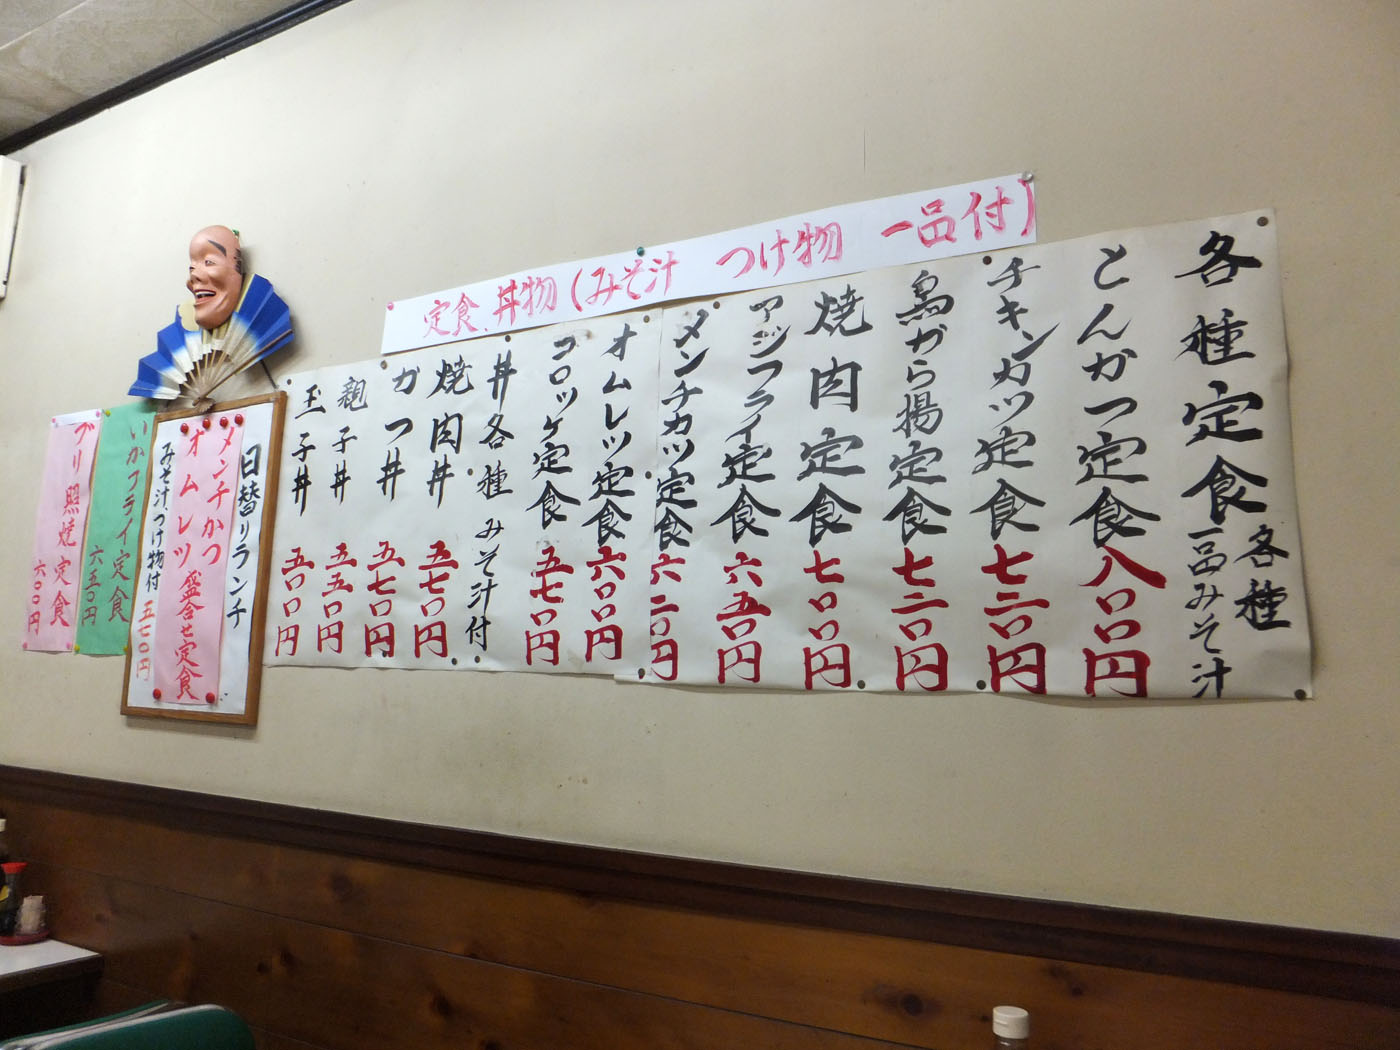 定食、丼物(みそ汁 つけ物 一品付)
各種定食 各種
一品みそ汁
とんかつ定食 八〇〇円
チキンカツ定食 七二〇円
鳥から揚定食 七二〇円
焼肉定食 七〇〇円
アジフライ定食 六五〇円
メンチカツ定食 六二〇円
オムレツ定食 六〇〇円
コロッケ定食 五七〇円
丼各種 みそ汁付
焼肉丼 五七〇円
かつ丼 五七〇円
親子丼 五五〇円
玉子丼 五〇〇円
日替りランチ
メンチかつ
オムレツ 盛合せ定食
みそ汁、つけ物付 五七〇円
いかフライ定食
六五〇円
ブリ照焼定食
六〇〇円